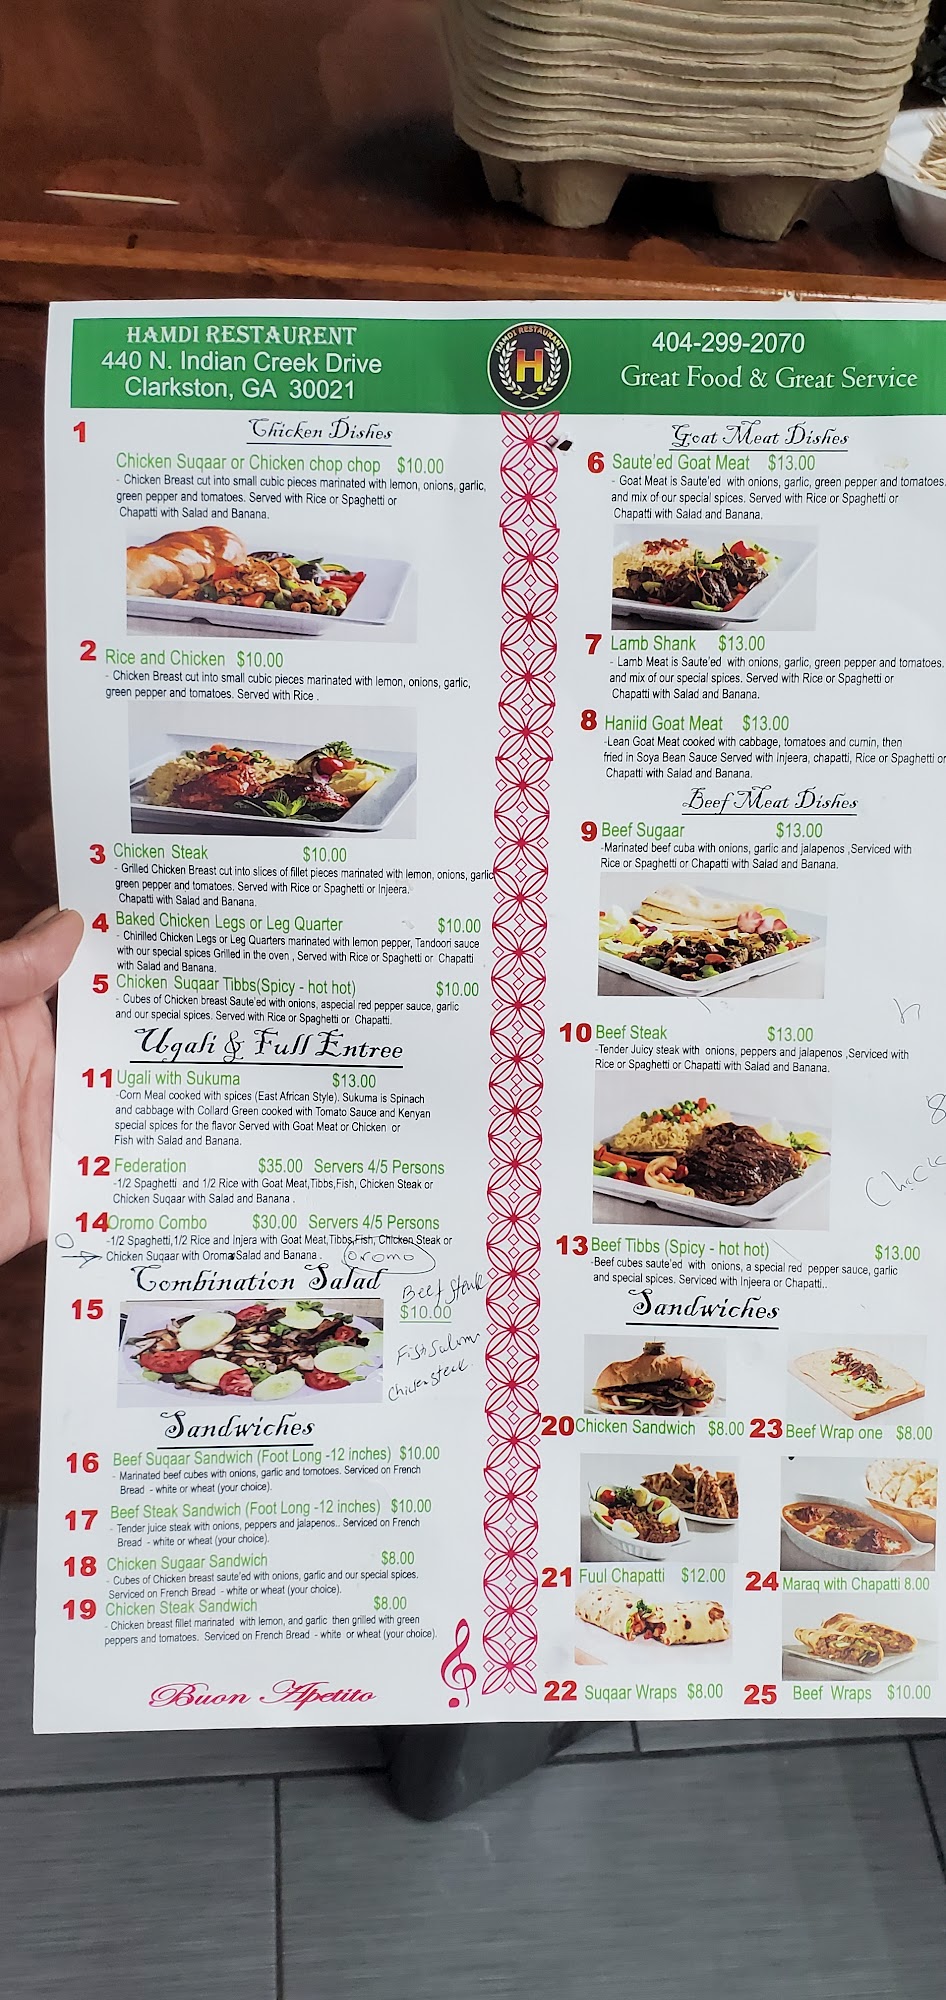 HAMDI RESTAURENT
440 N. Indian Creek Drive
Clarkston, GA 30021
HAMDI RESTAURANT
H
404-299-2070
Great Food & Great Service
Chicken Dishes
1
Chicken Suqaar or Chicken chop chop $10.00
- Chicken Breast cut into small cubic pieces marinated with lemon, onions, garlic,
green pepper and tomatoes. Served with Rice or Spaghetti or
Chapatti with Salad and Banana.
2 Rice and Chicken $10.00
- Chicken Breast cut into small cubic pieces marinated with lemon, onions, garlic,
green pepper and tomatoes. Served with Rice .
3 Chicken Steak $10.00
- Grilled Chicken Breast cut into slices of fillet pieces marinated with lemon, onions, garlic
green pepper and tomatoes. Served with Rice or Spaghetti or Injeera.
Chapatti with Salad and Banana.
4 Baked Chicken Legs or Leg Quarter $10.00
- Chirilled Chicken Legs or Leg Quarters marinated with lemon pepper, Tandoori sauce
with our special spices Grilled in the oven , Served with Rice or Spaghetti or Chapatti
with Salad and Banana.
5 Chicken Suqaar Tibbs(Spicy - hot hot) $10.00
- Cubes of Chicken breast Saute'ed with onions, aspecial red pepper sauce, garlic
and our special spices. Served with Rice or Spaghetti or Chapatti.
Ugali & Full Entree
11 Ugali with Sukuma $13.00
-Corn Meal cooked with spices (East African Style). Sukuma is Spinach
and cabbage with Collard Green cooked with Tomato Sauce and Kenyan
special spices for the flavor Served with Goat Meat or Chicken or
Fish with Salad and Banana.
12 Federation $35.00 Servers 4/5 Persons
-1/2 Spaghetti and 1/2 Rice with Goat Meat,Tibbs,Fish, Chicken Steak or
Chicken Suqaar with Salad and Banana .
14 Oromo Combo $30.00 Servers 4/5 Persons
-1/2 Spaghetti,1/2 Rice and Injera with Goat Meat,Tibbs,Fish, Chicken Steak or
Chicken Suqaar with Oroma Salad and Banana .
oromo
Combination Salad
15
Beef Steak
$10.00
Fish Salmon
Chicken steak
Sandwiches
16 Beef Suqaar Sandwich (Foot Long -12 inches) $10.00
- Marinated beef cubes with onions, garlic and tomotoes. Serviced on French
Bread - white or wheat (your choice).
17 Beef Steak Sandwich (Foot Long -12 inches) $10.00
- Tender juice steak with onions, peppers and jalapenos.. Serviced on French
Bread - white or wheat (your choice).
18 Chicken Sugaar Sandwich $8.00
- Cubes of Chicken breast saute'ed with onions, garlic and our special spices.
Serviced on French Bread - white or wheat (your choice).
19 Chicken Steak Sandwich $8.00
- Chicken breast fillet marinated with lemon, and garlic then grilled with green
peppers and tomatoes. Serviced on French Bread - white or wheat (your choice).
Buon Apetito
Goat Meat Dishes
6 Saute'ed Goat Meat $13.00
- Goat Meat is Saute'ed with onions, garlic, green pepper and tomatoes.
and mix of our special spices. Served with Rice or Spaghetti or
Chapatti with Salad and Banana.
7 Lamb Shank $13.00
- Lamb Meat is Saute'ed with onions, garlic, green pepper and tomatoes.
and mix of our special spices. Served with Rice or Spaghetti or
Chapatti with Salad and Banana.
8 Haniid Goat Meat $13.00
-Lean Goat Meat cooked with cabbage, tomatoes and cumin, then
fried in Soya Bean Sauce Served with Injeera, chapatti, Rice or Spaghetti or
Chapatti with Salad and Banana.
Beef Meat Dishes
9 Beef Sugaar $13.00
-Marinated beef cuba with onions, garlic and jalapenos ,Serviced with
Rice or Spaghetti or Chapatti with Salad and Banana.
10 Beef Steak $13.00
-Tender Juicy steak with onions, peppers and jalapenos ,Serviced with
Rice or Spaghetti or Chapatti with Salad and Banana.
13 Beef Tibbs (Spicy - hot hot) $13.00
-Beef cubes saute'ed with onions, a special red pepper sauce, garlic
and special spices. Serviced with Injeera or Chapatti..
Sandwiches
20 Chicken Sandwich $8.00 23 Beef Wrap one $8.00
21 Fuul Chapatti $12.00 24 Maraq with Chapatti 8.00
22 Suqaar Wraps $8.00 25 Beef Wraps $10.00